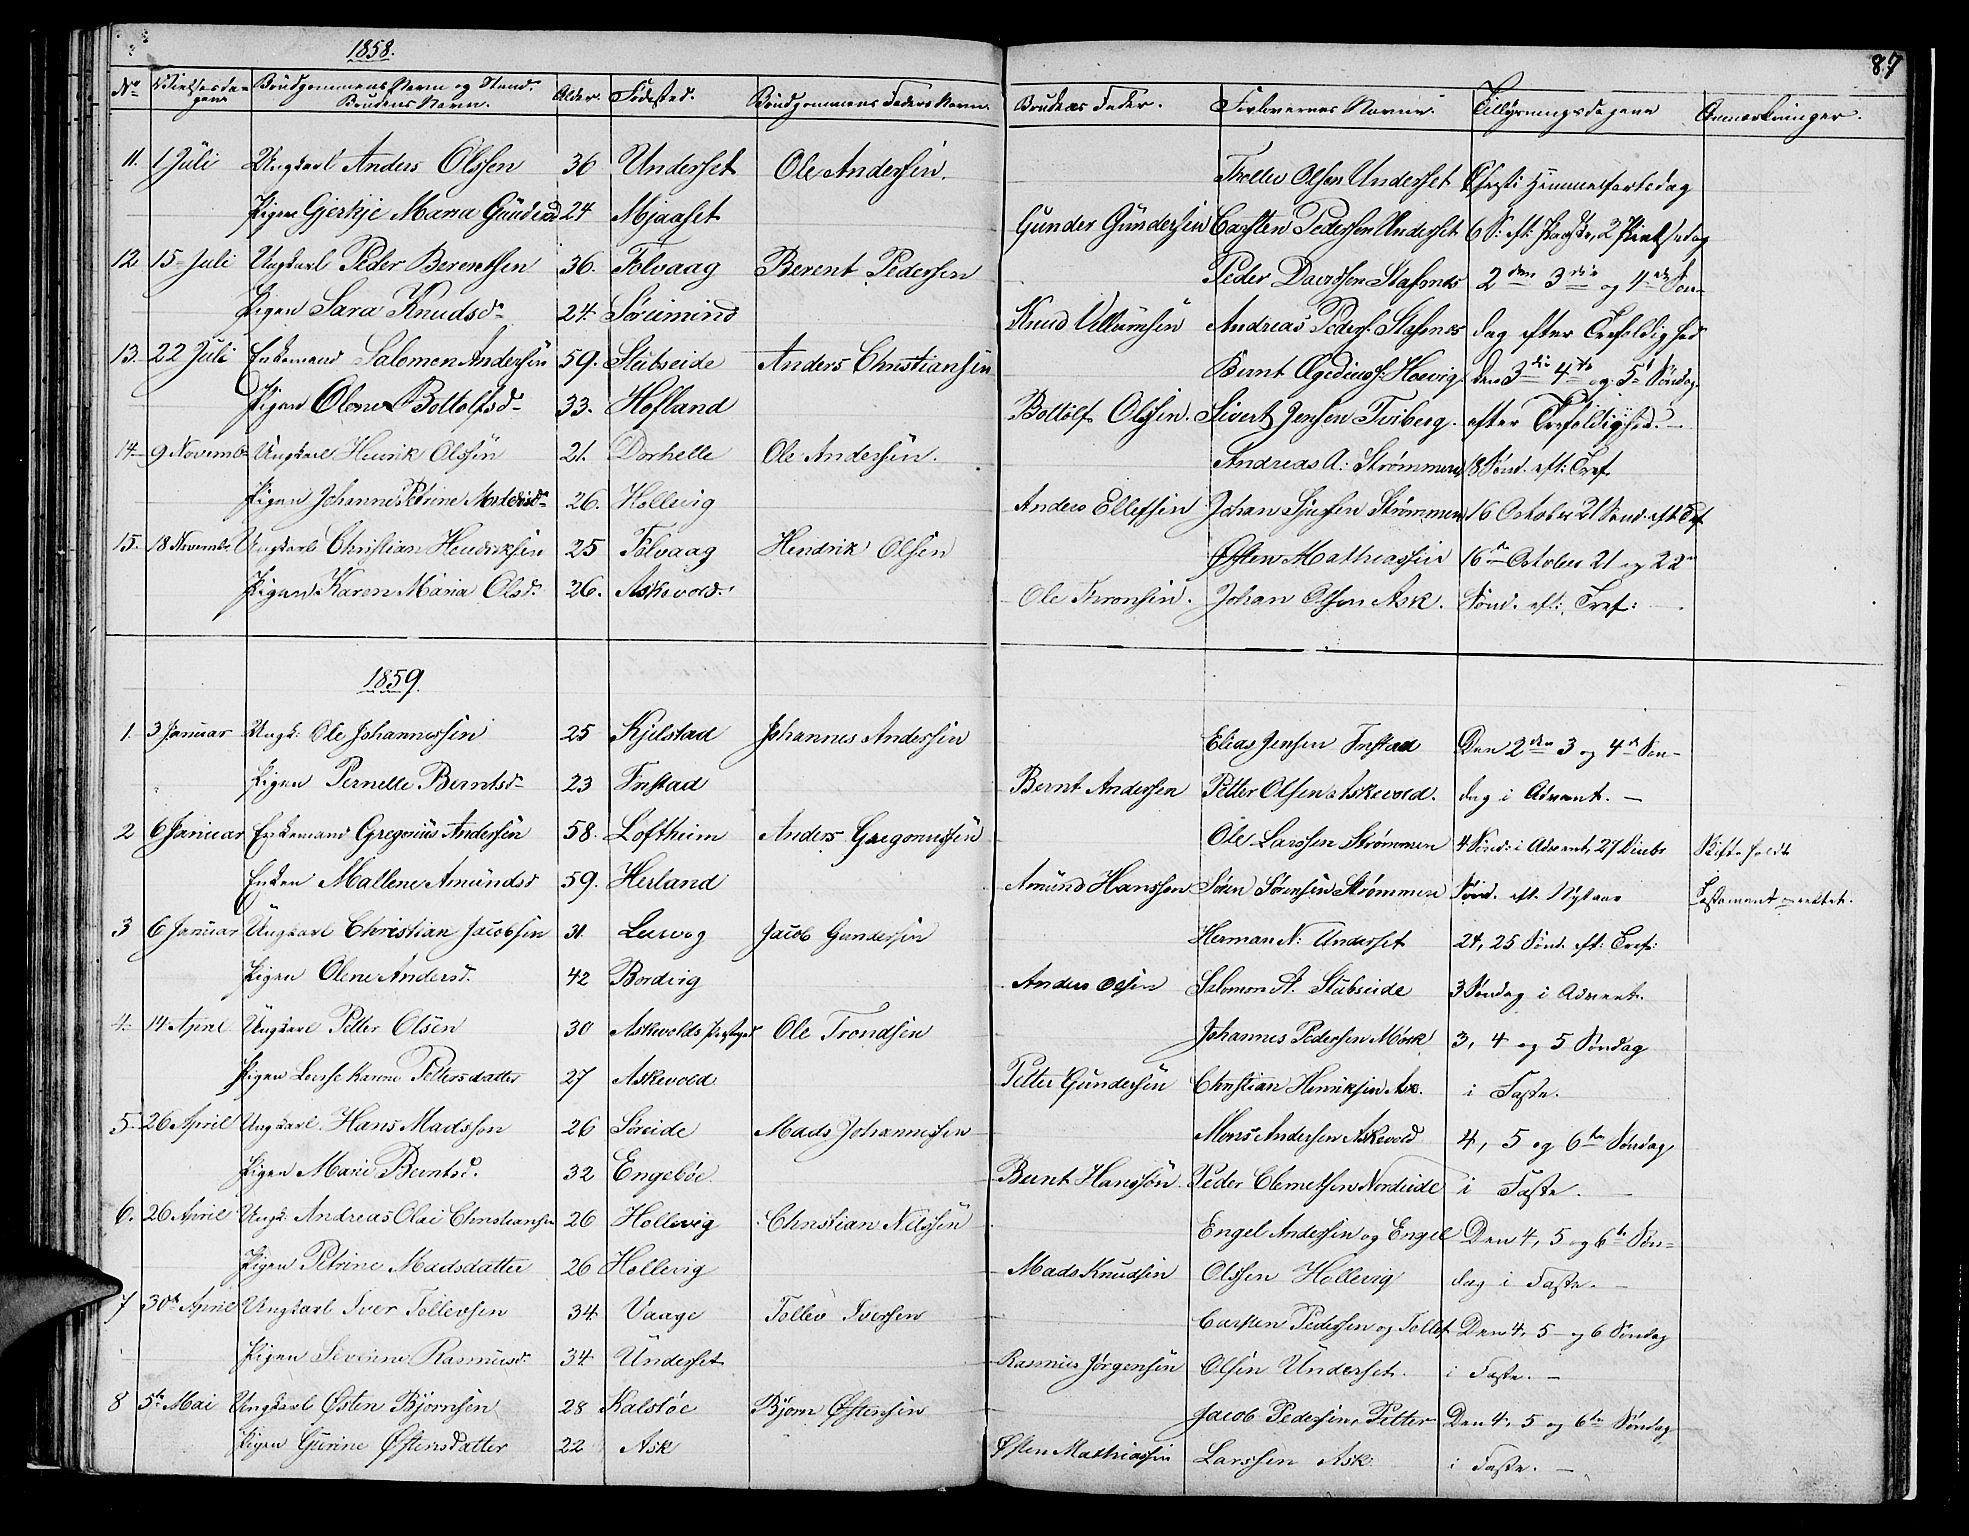 1858.
87
No Vielsesdagene Brudgommens Navn og Stand. Brudens Navn. Alder. Fødested. Brudgommens Faders Navn. Brudens Fader. Forlovernes Navne. Tillysningsdagene Anmærkninger.
11. 1 Juli Ungkarl Anders Olssen 36 Underset Ole Anderssen. Tollev Olsen Underset Christi Himmelfartsdag
Pigen Gjertje Maria Gunders 24 Mjaaset Gunder Gunderssen Carsten Pederssen Underset 6 S: eft: Paaske, 2 Pintsedag
12 15 Juli Ungkarl Peder Berentsen 36. Folvaag Berent Pedersen Peder Davidssen Stafsnes 2den 3die og 4de Søn-
Pigen Sara Knudsd. 24. Sørimind Knud Villumsen Andreas Peders: Stafsnes dag efter Trefoldighed
13. 22 Juli Enkemand Salomon Anderssen 59. Stubseide Anders Christiansen Bernt Ægedeuss: Hoevig. den 3die 4de og 5te Søndag
Pigen Olene Bottolfsd. 33. Hofland Bottolf Olssen. Sivert Jensen Tviberg. efter Trefoldighed. -
14. 9 Novembr Ungkarl Henrik Olssen 21. Dorhelle Ole Anderssen. Andreas A: Strømmen 18 Sønd. eft: Tref
Pigen Johanne Petrine Andersd. 26. Hollevig Anders Ellefsen Johan Sjursen Strømmen 16 October 21 Sønd. eft Tref
15. 18 Novembr Ungkarl Christian Hendriksen 25 Folvaag Hendrik Olsen Østen Mathiassen 16de October 21 og 22de
Pigen Karen Maria Olsd. 26. Askevold. Ole Thronsen. Johan Olsen Ask. Sønd. eft: Tref:
1859.
1. 3 Januar Ungk: Ole Johannessen 25 Kjelstad Johannes Anderssen Elias Jensen Instad Den 2den 3 og 4de Søn-
Pigen Pernelle Berntsd. 23 Instad Bernt Anderssen Petter Olsen Askevold. dag i Advent. -
2 6 Januar Enkemand Gregorius Anderssen 58. Loftheim Anders Gregoriussen Ole Larssen Strømmen 4 Sønd: i Advent, 27 Decbr Skifte holdt
Enken Mallene Amundsd 59. Herland Amund Hanssen Søren Sørensen Strømmen Sønd. eft. Nytaar Testament oprettet.
3 6 Januar Ungkarl Christian Jacobsen 31. Leirvog Jacob Gundersen Herman N: Underset 24, 25 Sønd. eft: Tref:
Pigen Olene Andersd. 42 Bordvig Anders Olsen Salomon A. Stubseide 3 Søndag i Advent.
4. 14 April Ungkarl Petter Olsen 30 Askevolds Præstegd Ole Trondsen Johannes Pedersen Mørk 3, 4 og 5 Søndag
Pigen Lense Karine Pettersdatter 27 Askevold Petter Gundersen Christian Henriksen Ask. i Faste.
5. 26 April Ungkarl. Hans Madssen 26 Søreide Mads Johannessen Mons Andersen Askevold 4, 5 og 6te Søndag
Pigen Marie Berntsd. 32 Engebøe Bernt Hanssøn Peder Clemetsen Nordeide i Faste. -
6. 26 April Ungk. Andreas Olai Christiansen 26 Hollevig Christian Nilssen Engel Andersen og Engel Den 4, 5 og 6te Søn-
Pigen Petrine Madsdatter 26 Hollevig Mads Knudsen Olssen Hollevig dag i Faste. -
7 30te April Ungkarl Iver Tollevsen 34. Vaage Tollev Iverssen Carsten Pederssen og Tollef Den 4, 5 og 6 Søndag
Pigen Severine Rasmusd. 34. Underset Rasmus Jørgensen Olsen Underset. i Faste. -
8 5te Mai Ungkarl Østen Bjørnsen 28 Kalstøe Bjørn Østensen Jacob Pedersen, Petter Den 4, 5 og 6te Søndag
Pigen Gurine Østensdatter 22 Ask Østen Mathiassen Larssen Ask. i Faste. -